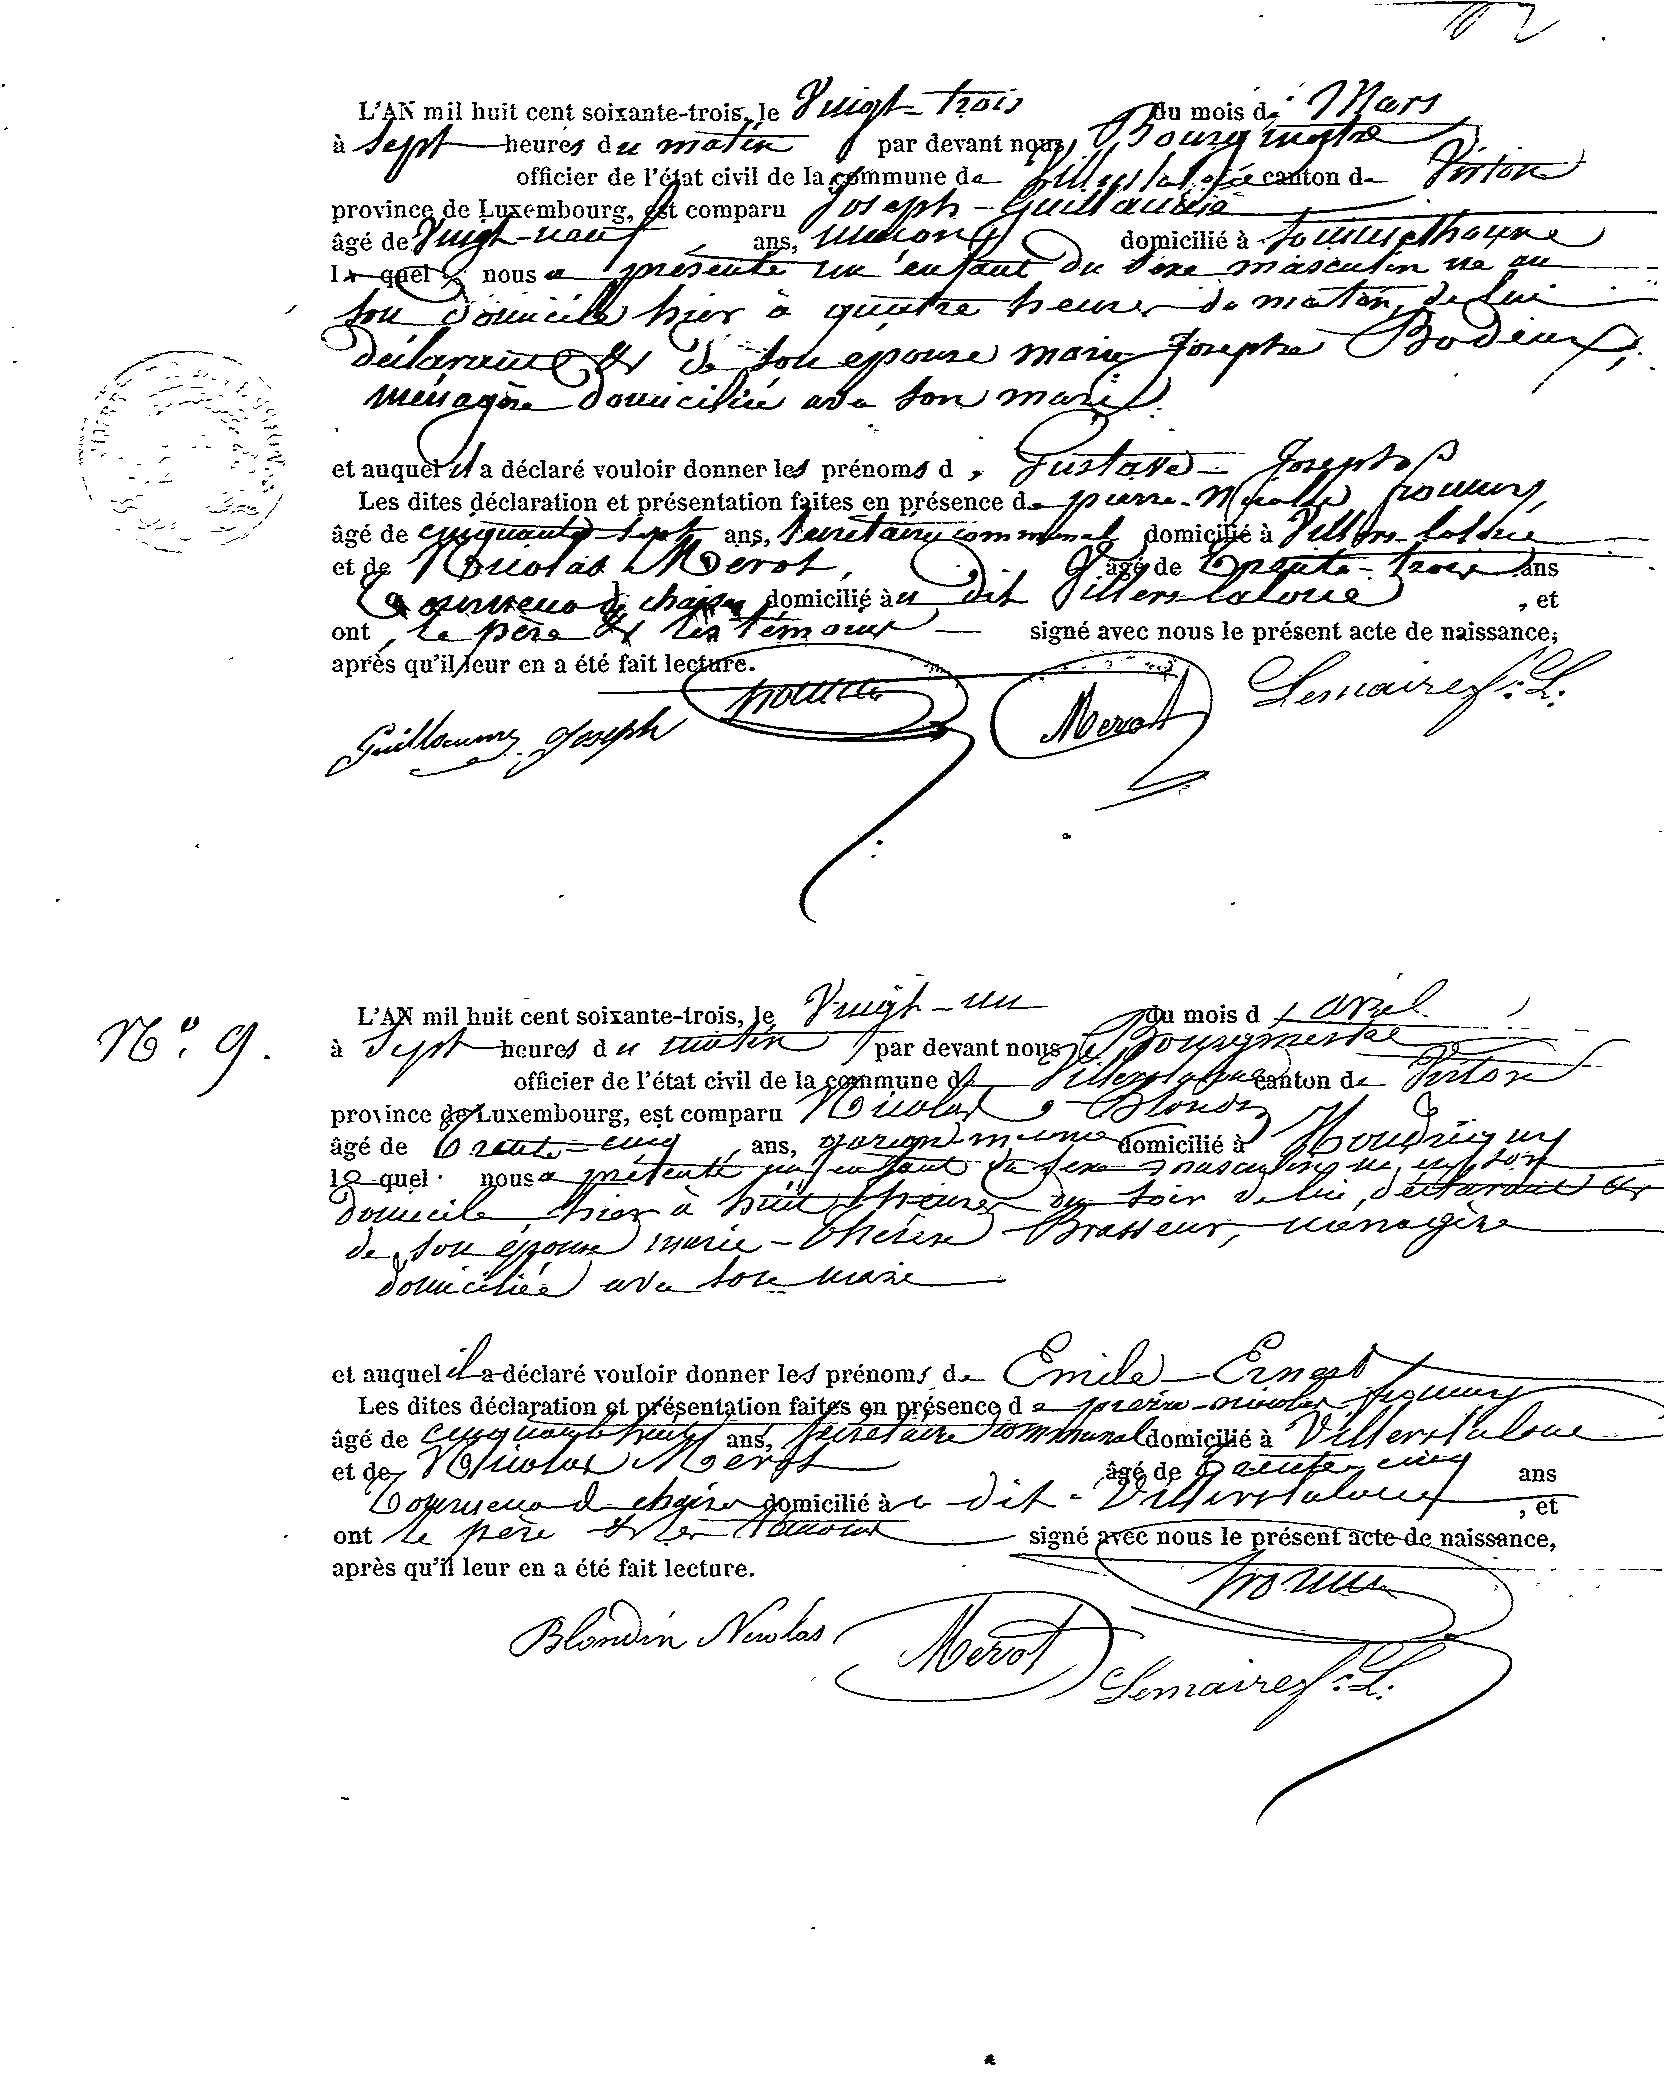 L'AN mil huit cent soixante-trois, le Vingt-trois du mois de Mars
à Sept heures du matin par devant nous, Bourgmestre
officier de l'état civil de la commune de Villers la loue canton de Virton
province de Luxembourg, est comparu Joseph - Guillaume
âgé de Vingt-neuf ans, maçon, domicilié à Sommethonne
lequel nous a présenté un enfant du sexe masculin né au
son domicile hier à quatre heures du matin, de lui
déclarant & de son épouse marie Josephe Bodeux,
ménagère domiciliée avec son mari.
et auquel il a déclaré vouloir donner les prénoms d, Gustave - Joseph
Les dites déclaration et présentation faites en présence de pierre-Nicolas
âgé de cinquante-sept ans, Secrétaire communal domicilié à Villers-laloue
et de Nicolas Merot, âgé de Trente-trois ans
Tourneur de chaises domicilié àu dit Villers-laloue , et
ont, le père & les témoins signé avec nous le présent acte de naissance,
après qu'il leur en a été fait lecture.
Merot Lemaire f: L.
Guillaume Joseph
No. 9.
L'AN mil huit cent soixante-trois, le Vingt-un du mois d, avril
à Sept heures du matin par devant nous Bourgmestre
officier de l'état civil de la commune de Villers laloue canton de Virton
province de Luxembourg, est comparu Nicolas - Blondin
âgé de Trente-cinq ans, domicilié à Houdrigny
lequel nous a présenté un enfant du sexe masculin né en son
domicile, hier à huit heures du soir de lui, déclarant &
de son épouse marie-thérèse Brasseur, ménagère
domiciliée avec son mari
et auquel il a déclaré vouloir donner les prénoms de Emile - Ernest
Les dites déclaration et présentation faites en présence de pierre-nicolas
âgé de cinquante huit ans, Secrétaire communal domicilié à Villers laloue
et de Nicolas Merot âgé de Trente-cinq ans
Tourneur de chaises domicilié àu dit - Villers laloue , et
ont le père & les témoins signé avec nous le présent acte de naissance,
après qu'il leur en a été fait lecture.
Blondin Nicolas Merot Lemaire f: L.